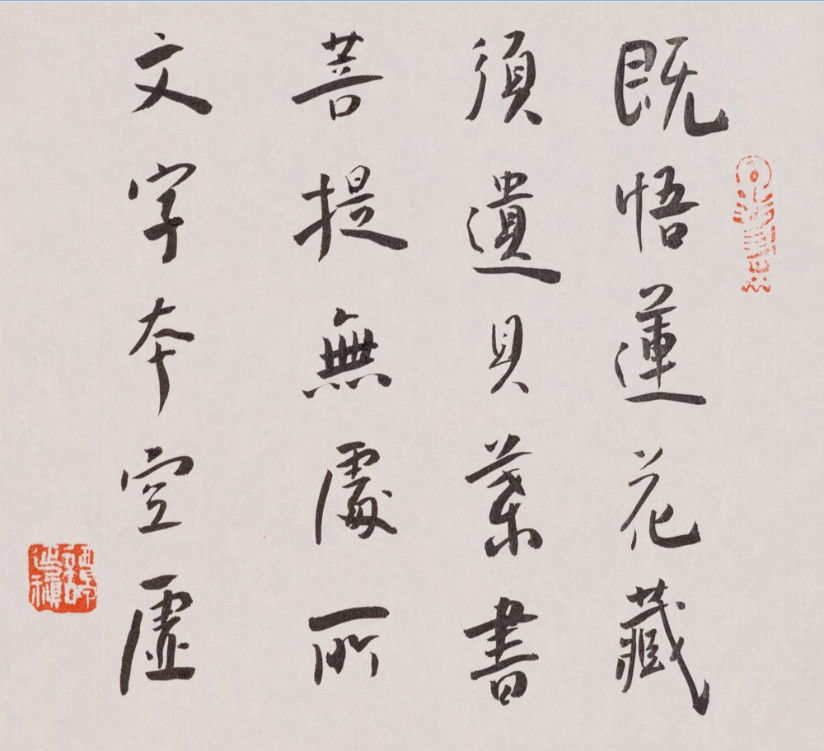 既悟蓮花藏
須遺貝葉書
菩提無處所
文字本空虛